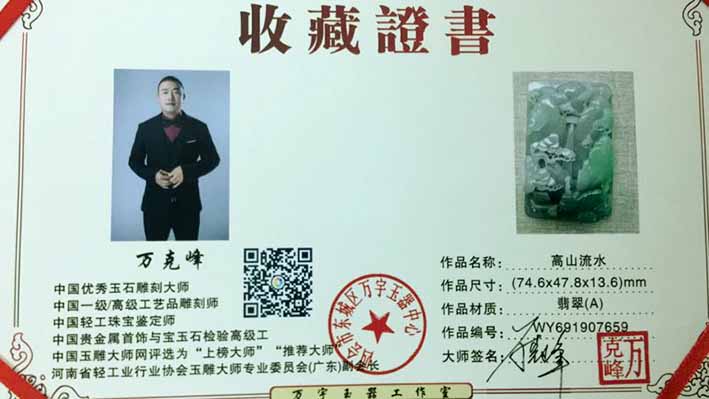 收藏證書
万克峰
中国优秀玉石雕刻大师
中国一级/高级工艺品雕刻师
中国轻工珠宝鉴定师
中国贵金属首饰与宝玉石检验高级工
中国玉雕大师网评选为“上榜大师”“推荐大师”
河南省轻工业行业协会玉雕大师专业委员会(广东)副会长
四会市东城区万字玉器中心
作品名称: 高山流水
作品尺寸: (74.6x47.8x13.6)mm
作品材质: 翡翠(A)
作品编号: WY691907659
大师签名: 万克峰
万克峰
万字玉器工作室